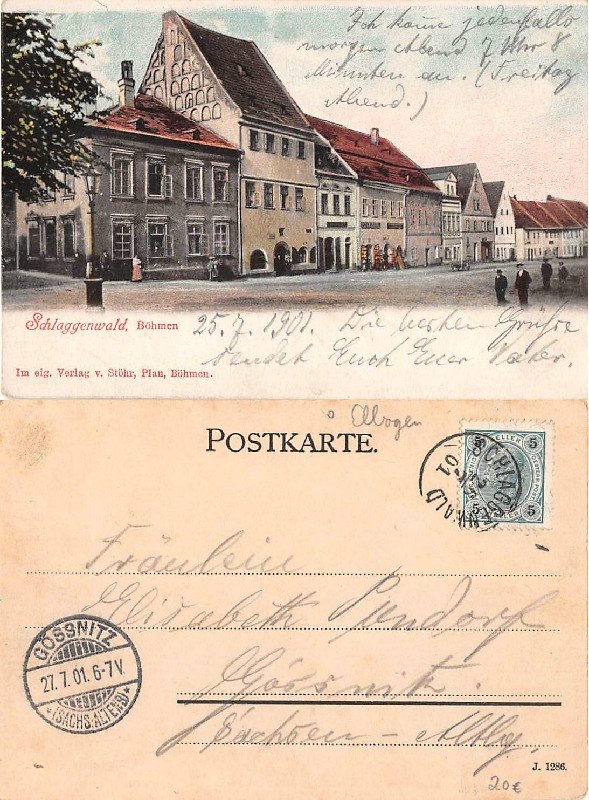 Ich kann jedenfalls
morgen Abend 7 Uhr 8
Minuten an. (Freitag
Abend.)
Schlaggenwald, Böhmen
25.7.1901. Die besten Grüße
sendet Euch Euer Vater.
Im eig. Verlag v. Stöhr, Plan, Böhmen.
Elbogen
POSTKARTE.
5 HELLER 5
5 5
SCHLAGGENWALD
01
Fräulein
Elisabeth
Gössnitz.
Sachsen-Altbg.
GÖSSNITZ
27.7.01.6-7V.
*(SACHS.ALTENB)*
J. 1286.
20€